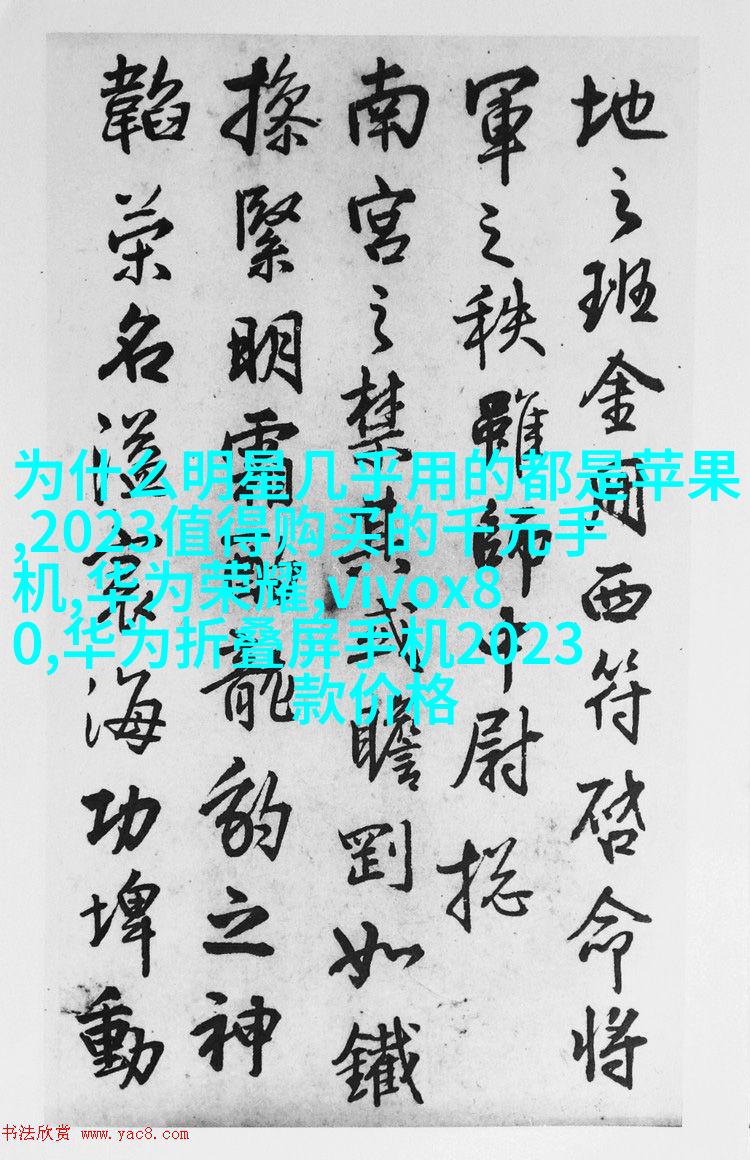 地之班金西符啓命将
軍之秩雖師中尉揔
南宫之禁其或瞻罰如鐵
操緊明霜龍豹之神
韜榮名溢寰海功埤動
为什么明星几乎用的都是苹果
,2023值得购买的千元手
机,华为荣耀,vivox8
0,华为折叠屏手机2023
款价格
书法欣赏 www.yac8.com